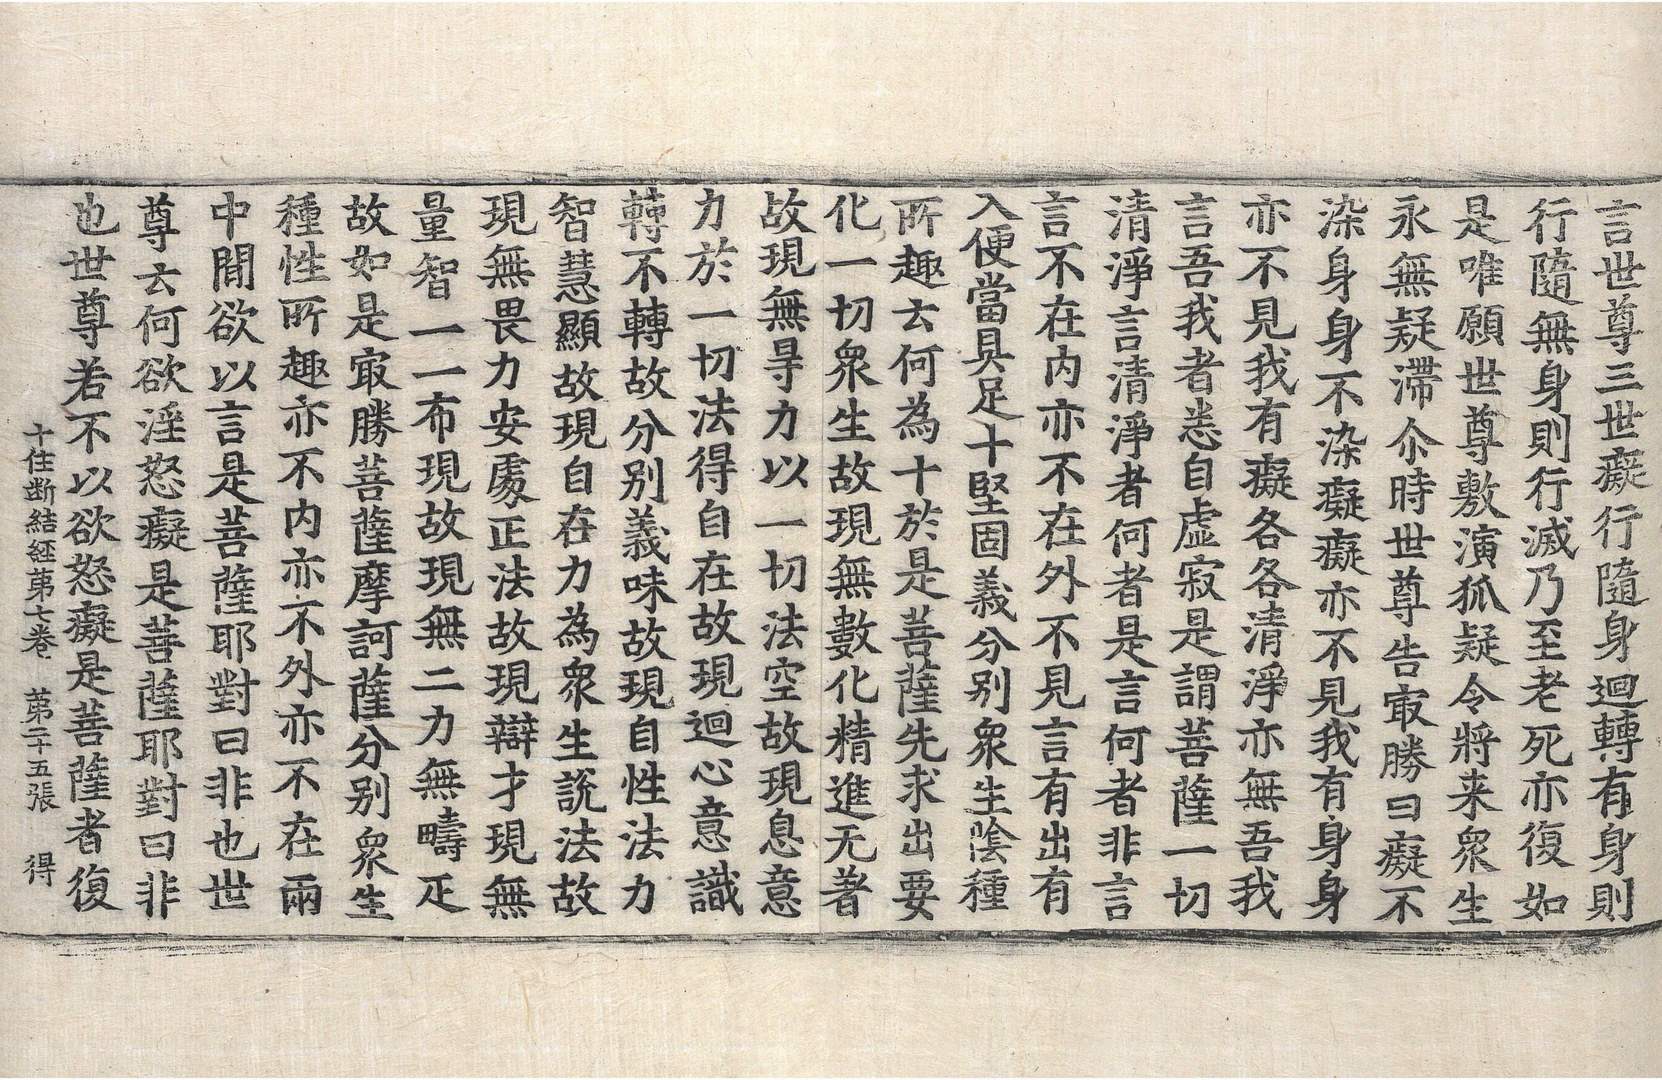 言世尊三世癡行隨身迴轉有身則
行隨無身則行滅乃至老死亦復如
是唯願世尊敷演狐疑令將来衆生
永無疑滯尒時世尊告㝡勝曰癡不
染身身不染癡癡亦不見我有身身
亦不見我有癡各各清淨亦無吾我
言吾我者悉自虛寂是謂菩薩一切
清淨言清淨者何者是言何者非言
言不在内亦不在外不見言有出有
入便當具足十堅固義分别衆生陰種
所趣云何為十於是菩薩先求出要
化一切衆生故現無數化精進无著
故現無㝵力以一切法空故現息意
力於一切法得自在故現迴心意識
轉不轉故分别義味故現自性法力
智慧顯故現自在力為衆生說法故
現無畏力安處正法故現辯才現無
量智一一布現故現無二力無疇疋
故如是㝡勝菩薩摩訶薩分别衆生
種性所趣亦不内亦不外亦不在兩
中間欲以言是菩薩耶對曰非也世
尊云何欲淫怒癡是菩薩耶對曰非
也世尊若不以欲怒癡是菩薩者復
十住斷結經第七卷 第二十五張 得